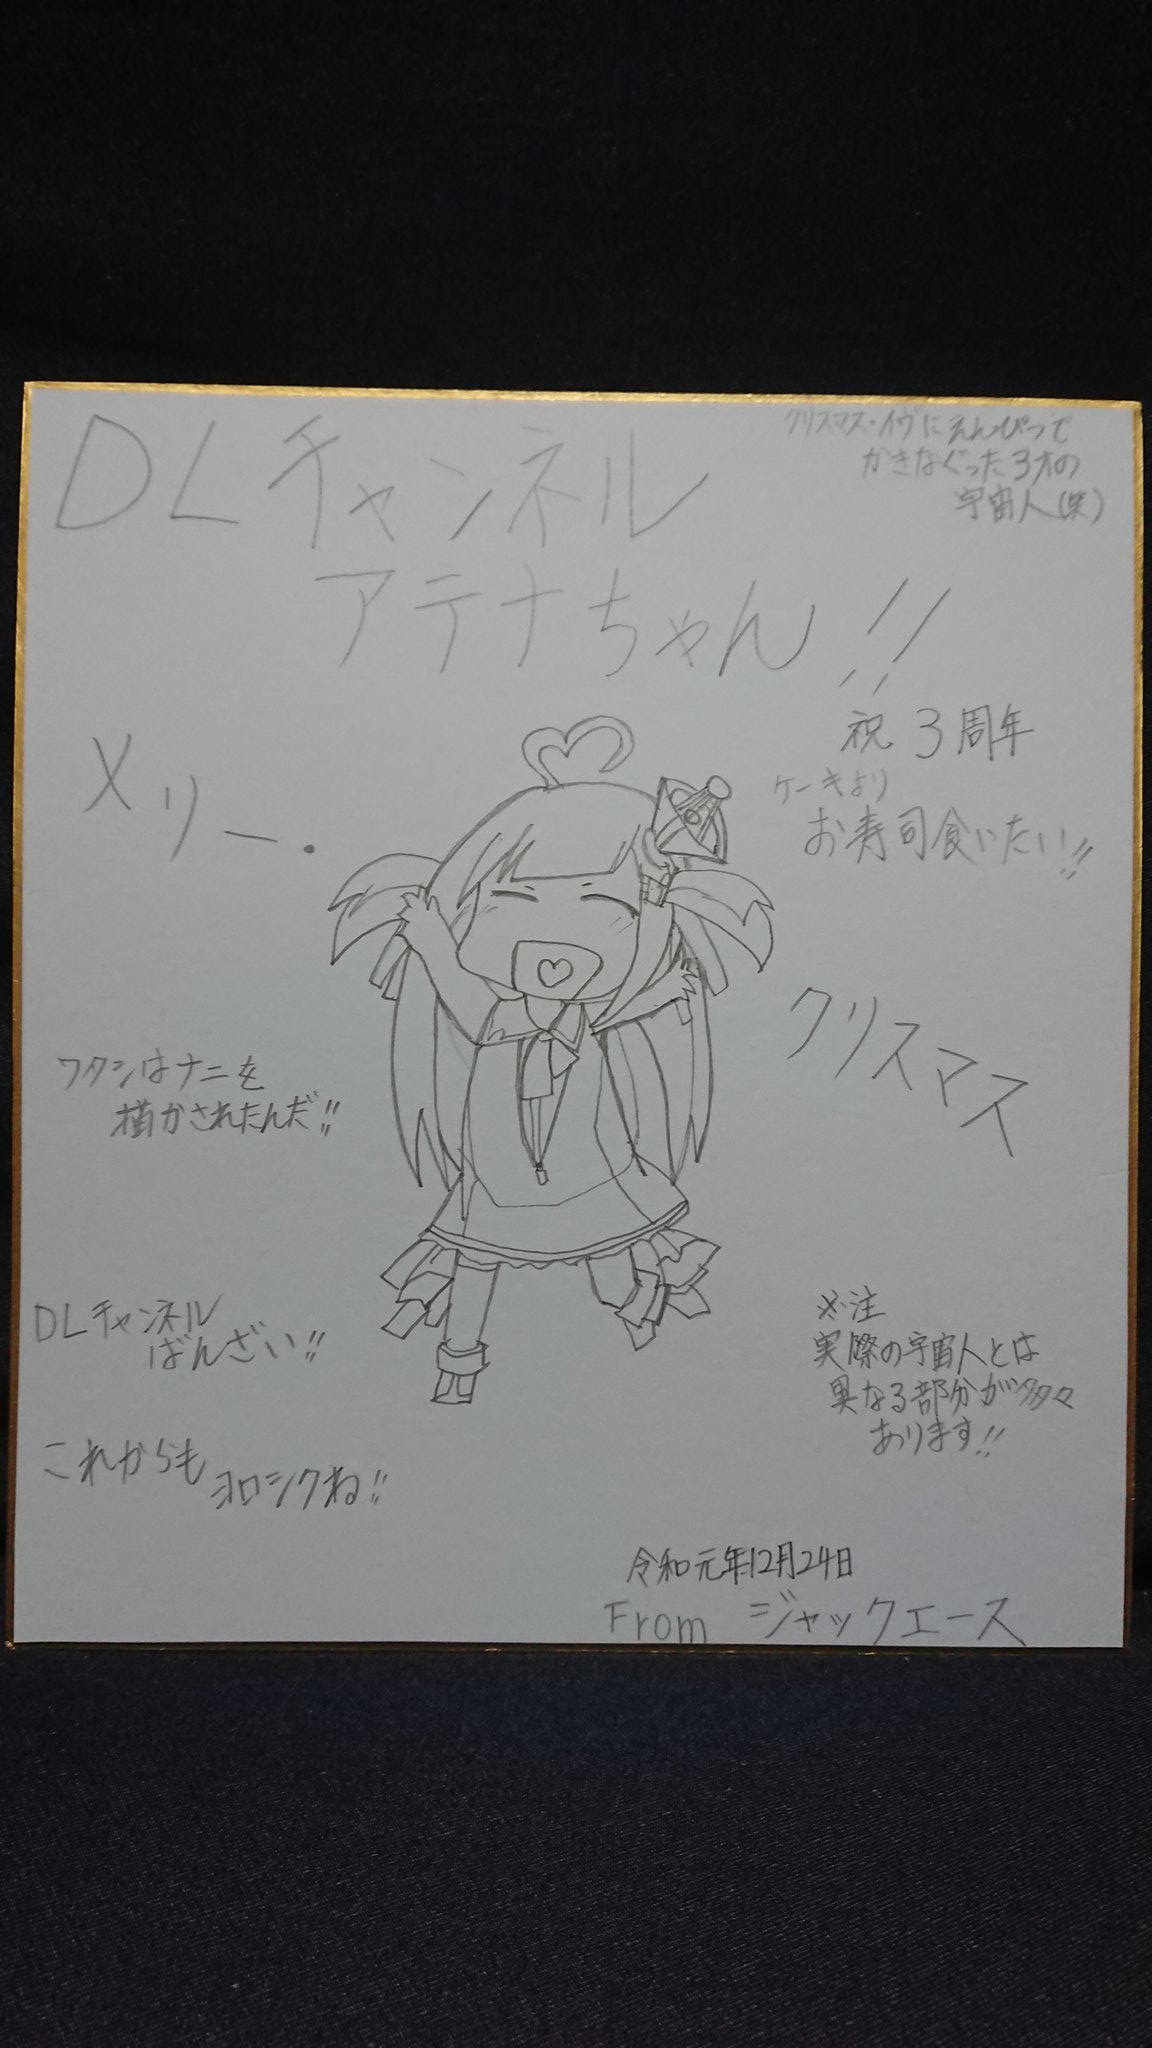 クリスマス・イヴにえんぴつで
かきなぐった3才の
宇宙人(笑)
DLチャンネル
アテナちゃん!!
祝 3周年
ケーキより
お寿司食いたい!!
メリー.
クリスマス
ワタシはナニを
描かされたんだ!!
DLチャンネル
ばんざい!!
これからも
ヨロシクね!!
※注
実際の宇宙人とは
異なる部分が多々
あります!!
令和元年12月24日
From ジャックエース